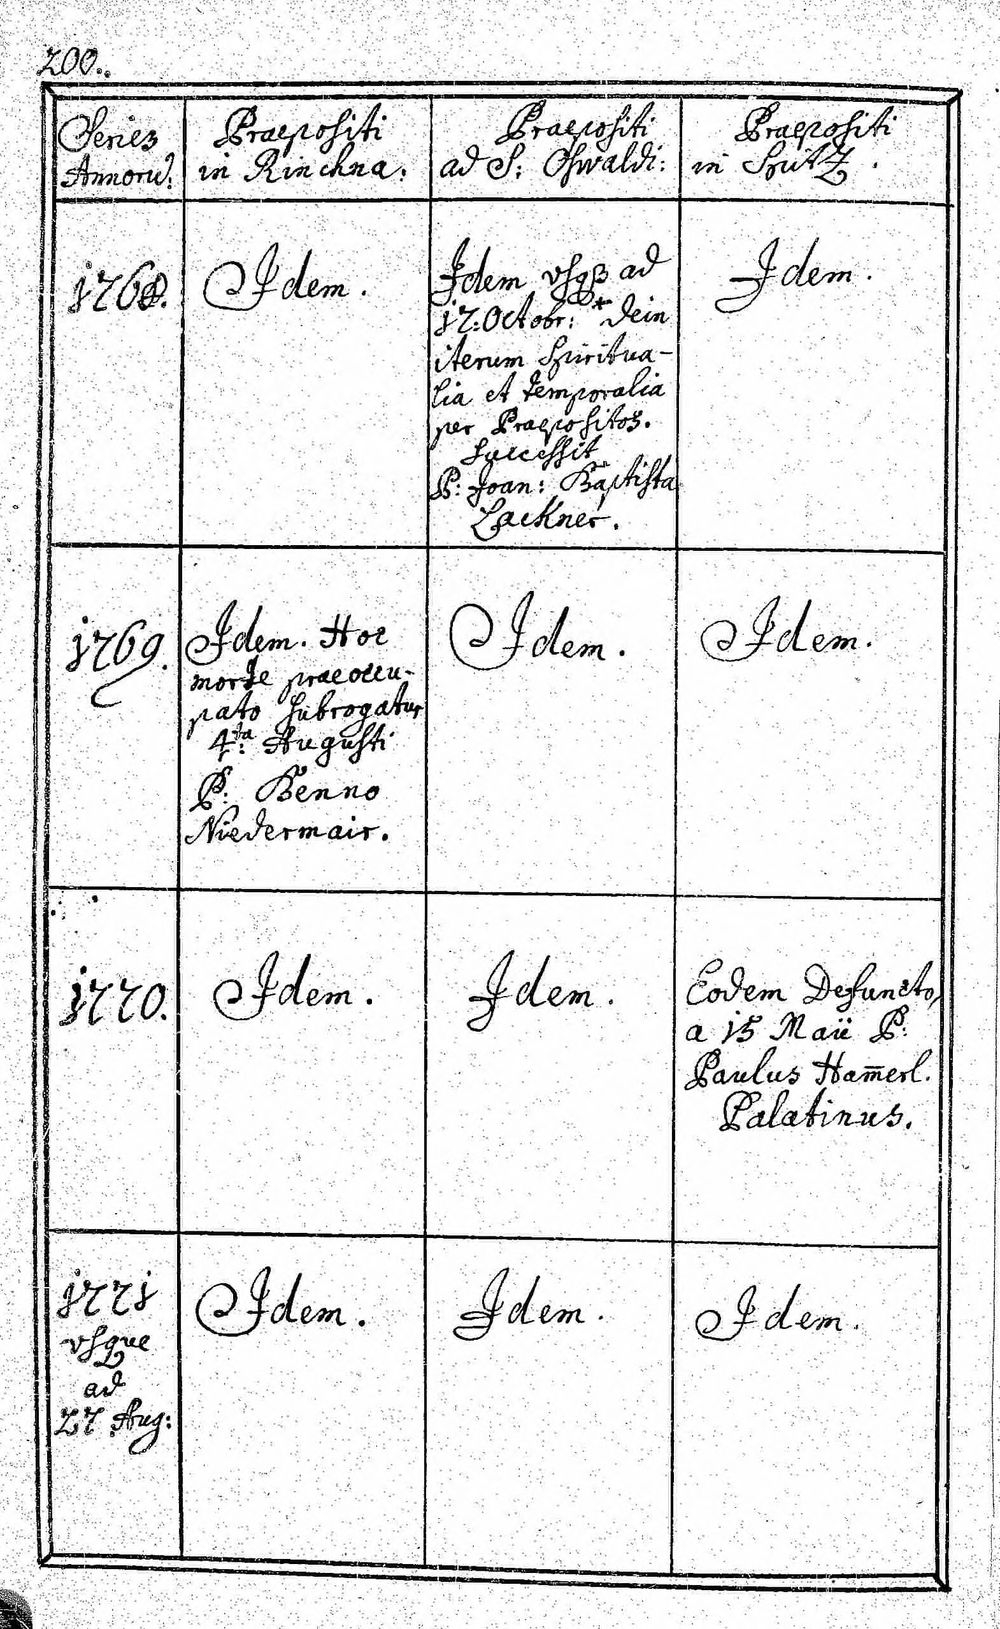 200..
Series
Annorū:
Praepositi
in Rinchna:
Praepositi
ad S: Oswaldi:
Praepositi
in Spitz.
1768.
Idem.
Idem vsqß ad
17: Octobr: * dein
iterum spiritua-
lia et temporalia
per Praepositos.
Successit
P: Joan: Baptista
Lackner.
Idem.
1769.
Idem. Hoc
morte praeoccu-
pato subrogatur
4ta: Augusti
P: Benno
Niedermair.
Idem.
Idem.
1770.
Idem.
Idem.
Eodem Defuncto,
a 15 Maii P:
Paulus Ham̄erl.
Palatinus.
1771
vsque
ad
27 Aug:
Idem.
Idem.
Idem.